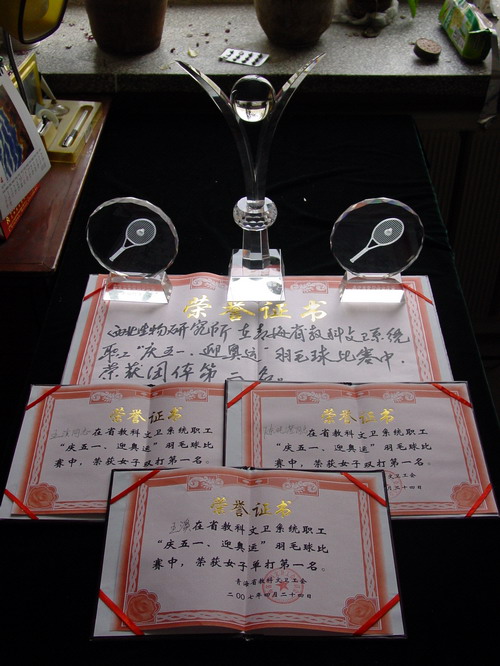 荣誉证书
西北生物研究所 在青海省教科文卫系统
职工"庆五一、迎奥运"羽毛球比赛中,
荣获团体第二名。
荣誉证书
在省教科文卫系统职工
"庆五一、迎奥运"羽毛球比
赛中,荣获女子双打第一名。
荣誉证书
在省教科文卫系统职工
"庆五一、迎奥运"羽毛球比
赛中,荣获女子双打第一名。
文卫工会
月二十四日
荣誉证书
在省教科文卫系统职工
"庆五一、迎奥运"羽毛球比
赛中,荣获女子单打第一名。
青海省教科文卫工会
二00七年四月二十四日